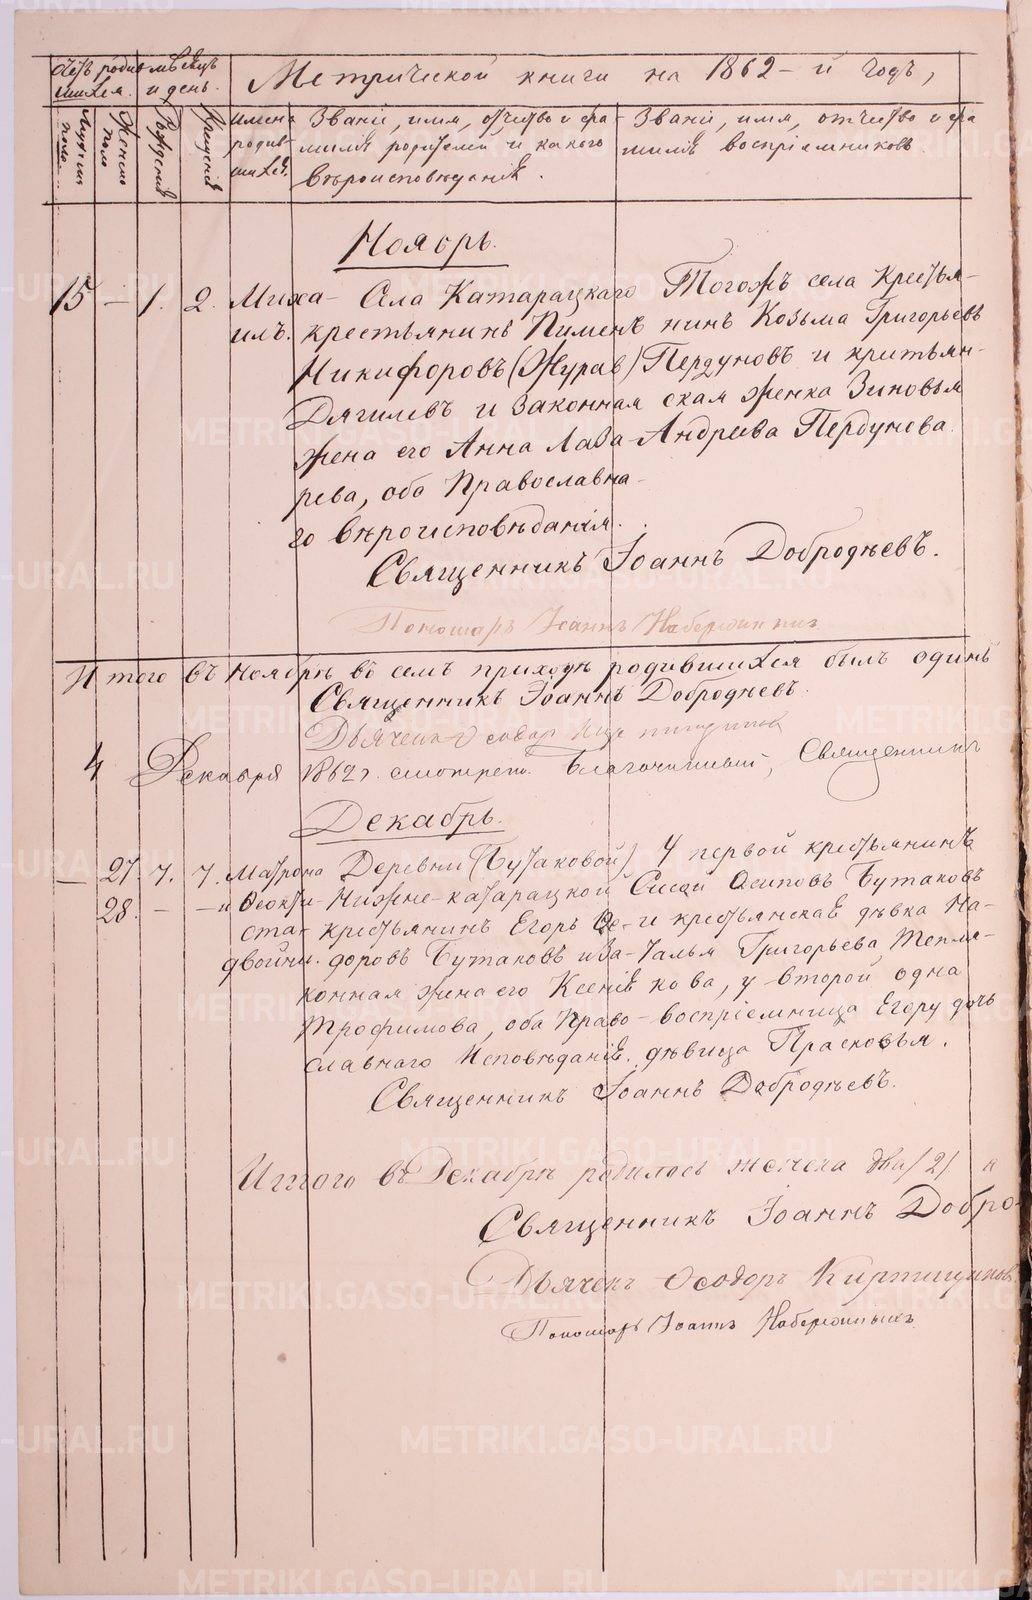 Счетъ родив- мѣсяцъ Метрической книги на 1862-й годъ,
шихся. и день.
Мужеска пола
Женска пола
Рожденія
Крещенія
Имена родив-шихся.
Званіе, имя, отчество и фа-
милія родителей и какого
вѣроисповѣданія.
Званіе, имя, отчество и фа
милія воспріемниковъ.
Ноябрь.
15 — 1. 2. Миха-
илъ.
Села Катарацкаго
крестьянинъ Пименъ
Никифоровъ (Журав)
Дягилевъ и законная
жена его Анна Лаза-
рева, оба Православна-
го вѣроисповѣданія.
Тогожъ села кресть́я-
нинъ Козьма Григорьевъ
Пердуновъ и критьян-
ская женка Зиновья
Андреева Пердунова.
Священникъ Іоаннъ Добродѣевъ.
Пономарь Іоаннъ
Итого въ Ноябрѣ въ семъ приходѣ родившихся былъ одинъ
Священникъ Іоаннъ Добродѣевъ.
Дьячекъ
4 Декабря 1862 г. смотрено. Благочинный, Священникъ
Декабрь.
— 27. 7. 7. Матрона
28. — — и Ѳеокти-
ста-
двойни.
Деревни (Бутаковой)
Нижне-катарацкой
крестьянинъ Егоръ Ѳе-
доровъ Бутаковъ и за-
конная жена его Ксенія
Трофимова, оба Право-
славнаго Исповѣданія.
У первой крестьянинъ
Сисой Осиповъ Бутаковъ
и крестьянская дѣвка На-
талья Григорьева Тепля-
кова, у второй одна
воспріемница Егору дочь
дѣвица Прасковья.
Священникъ Іоаннъ Добродѣевъ.
Итого въ Декабрѣ родилось женска два /2/
Священникъ Іоаннъ Добро-
Дьячекъ Ѳеодоръ Кирпищиковъ
Пономарь Іоаннъ Набережныхъ
METRIKI.GASO-URAL.RU